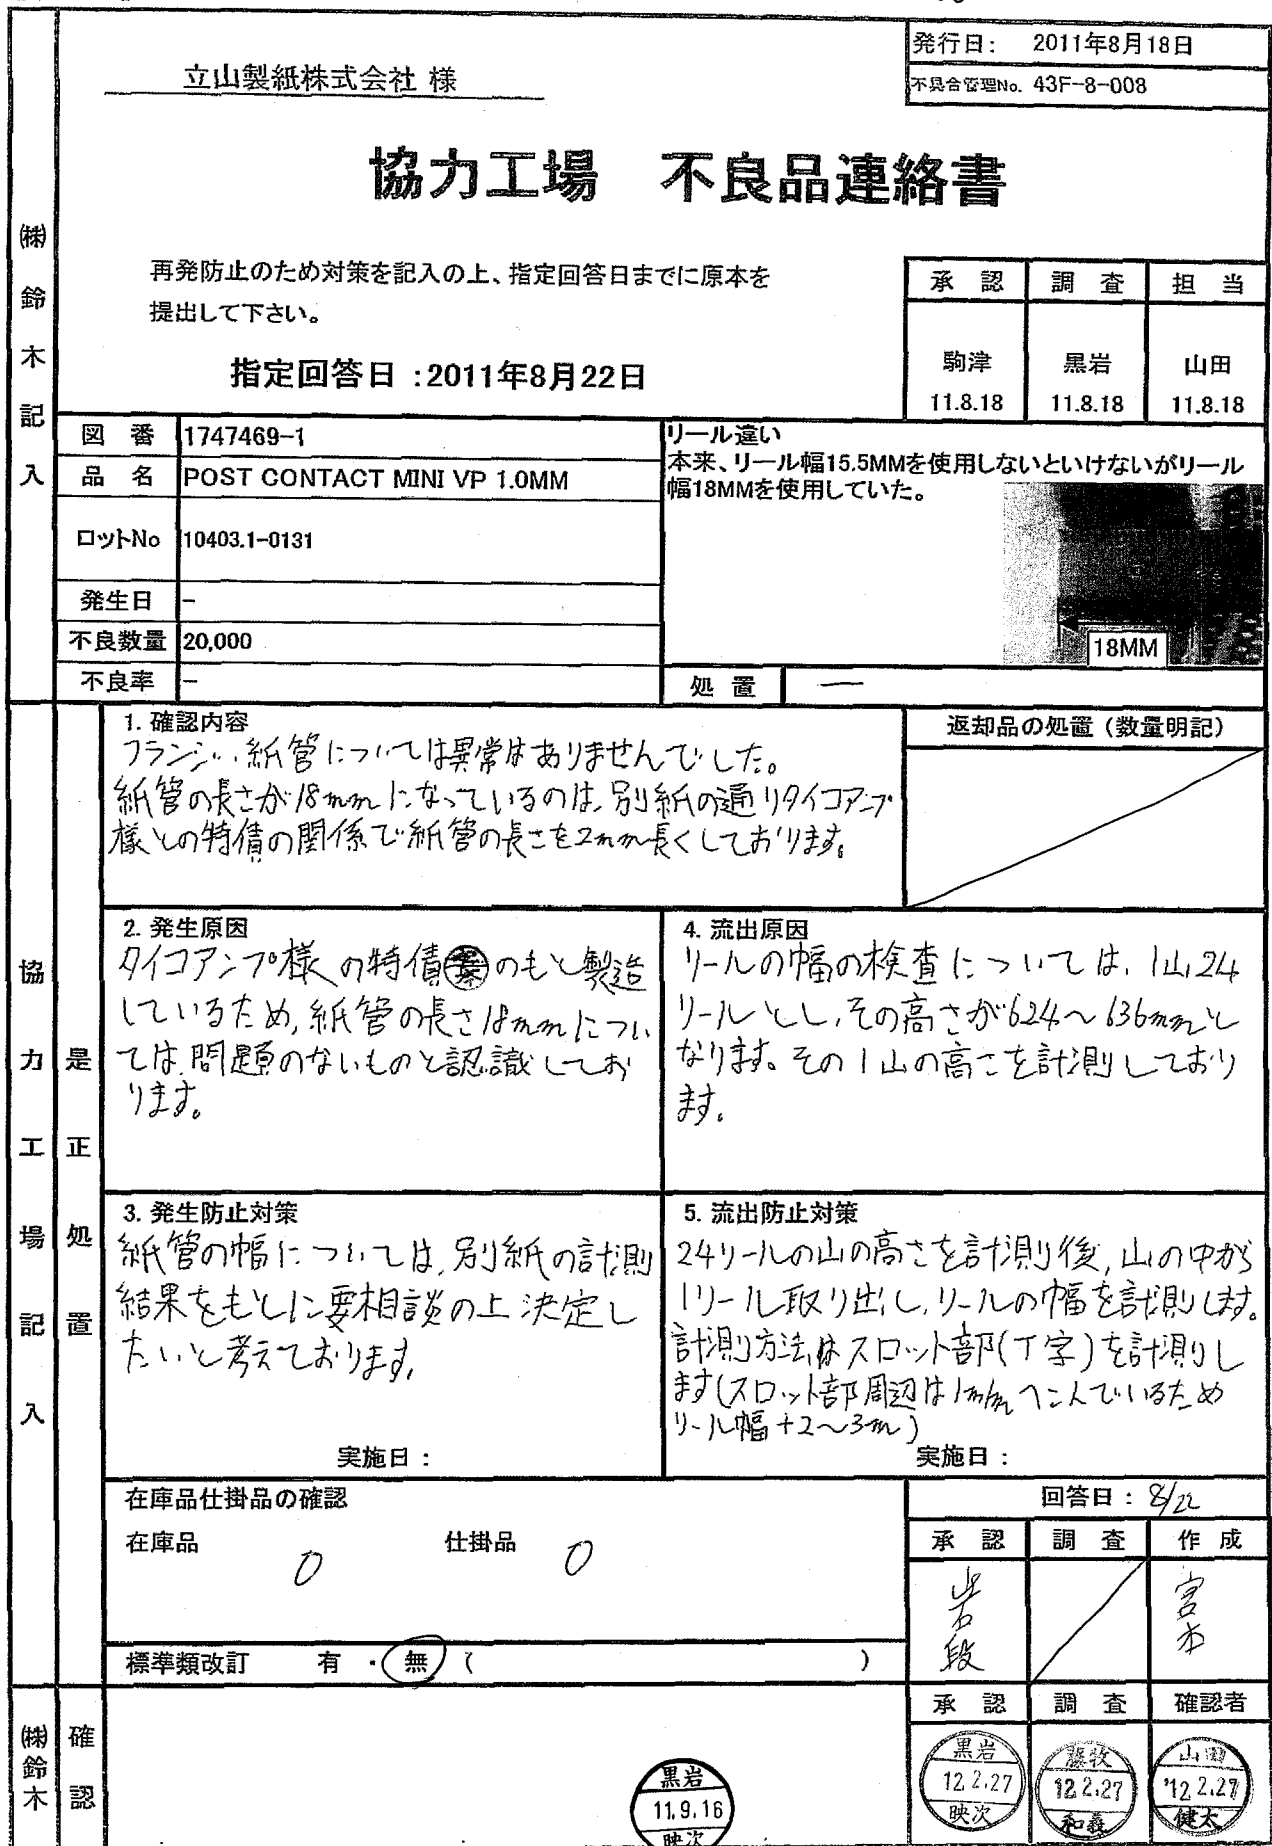 発行日： 2011年8月18日
立山製紙株式会社 様
不具合管理No. 43F-8-008
協力工場 不良品連絡書
㈱鈴木記入
再発防止のため対策を記入の上、指定回答日までに原本を
提出して下さい。
指定回答日：2011年8月22日
承認 調査 担当
駒津 黒岩 山田
11.8.18 11.8.18 11.8.18
図番 1747469-1
品名 POST CONTACT MINI VP 1.0MM
ロットNo 10403.1-0131
発生日 -
不良数量 20,000
不良率 -
リール違い
本来、リール幅15.5MMを使用しないといけないがリール
幅18MMを使用していた。
18MM
処置 ―
協力工場記入
是正処置
1. 確認内容
フランジ、紙管については異常はありませんでした。
紙管の長さが18mmになっているのは、別紙の通りタイコアンプ
様との特債の関係で紙管の長さを2mm長くしております。
返却品の処置（数量明記）
2. 発生原因
タイコアンプ様の特債のもと製造
しているため、紙管の長さ18mmについ
ては、問題のないものと認識してお
ります。
4. 流出原因
リールの幅の検査については、1山24
リールとし、その高さが624～636mmと
なります。その1山の高さを計測しており
ます。
3. 発生防止対策
紙管の幅については、別紙の計測
結果をもとに要相談の上決定し
たいと考えております。
実施日：
5. 流出防止対策
24リールの山の高さを計測後、山の中から
1リール取り出し、リールの幅を計測します。
計測方法はスロット部(T字)を計測し
ます(スロット部周辺は1mmへこんでいるため
リール幅+2～3m)
実施日：
在庫品仕掛品の確認
在庫品 0 仕掛品 0
標準類改訂 有・無 （ ）
回答日： 8/22
承認 調査 作成
岩段 宮本
㈱鈴木
確認
承認 調査 確認者
黒岩 12.2.27 映次
藤牧 12.2.27 和義
山田 '12.2.27 健太
黒岩 11.9.16 映次